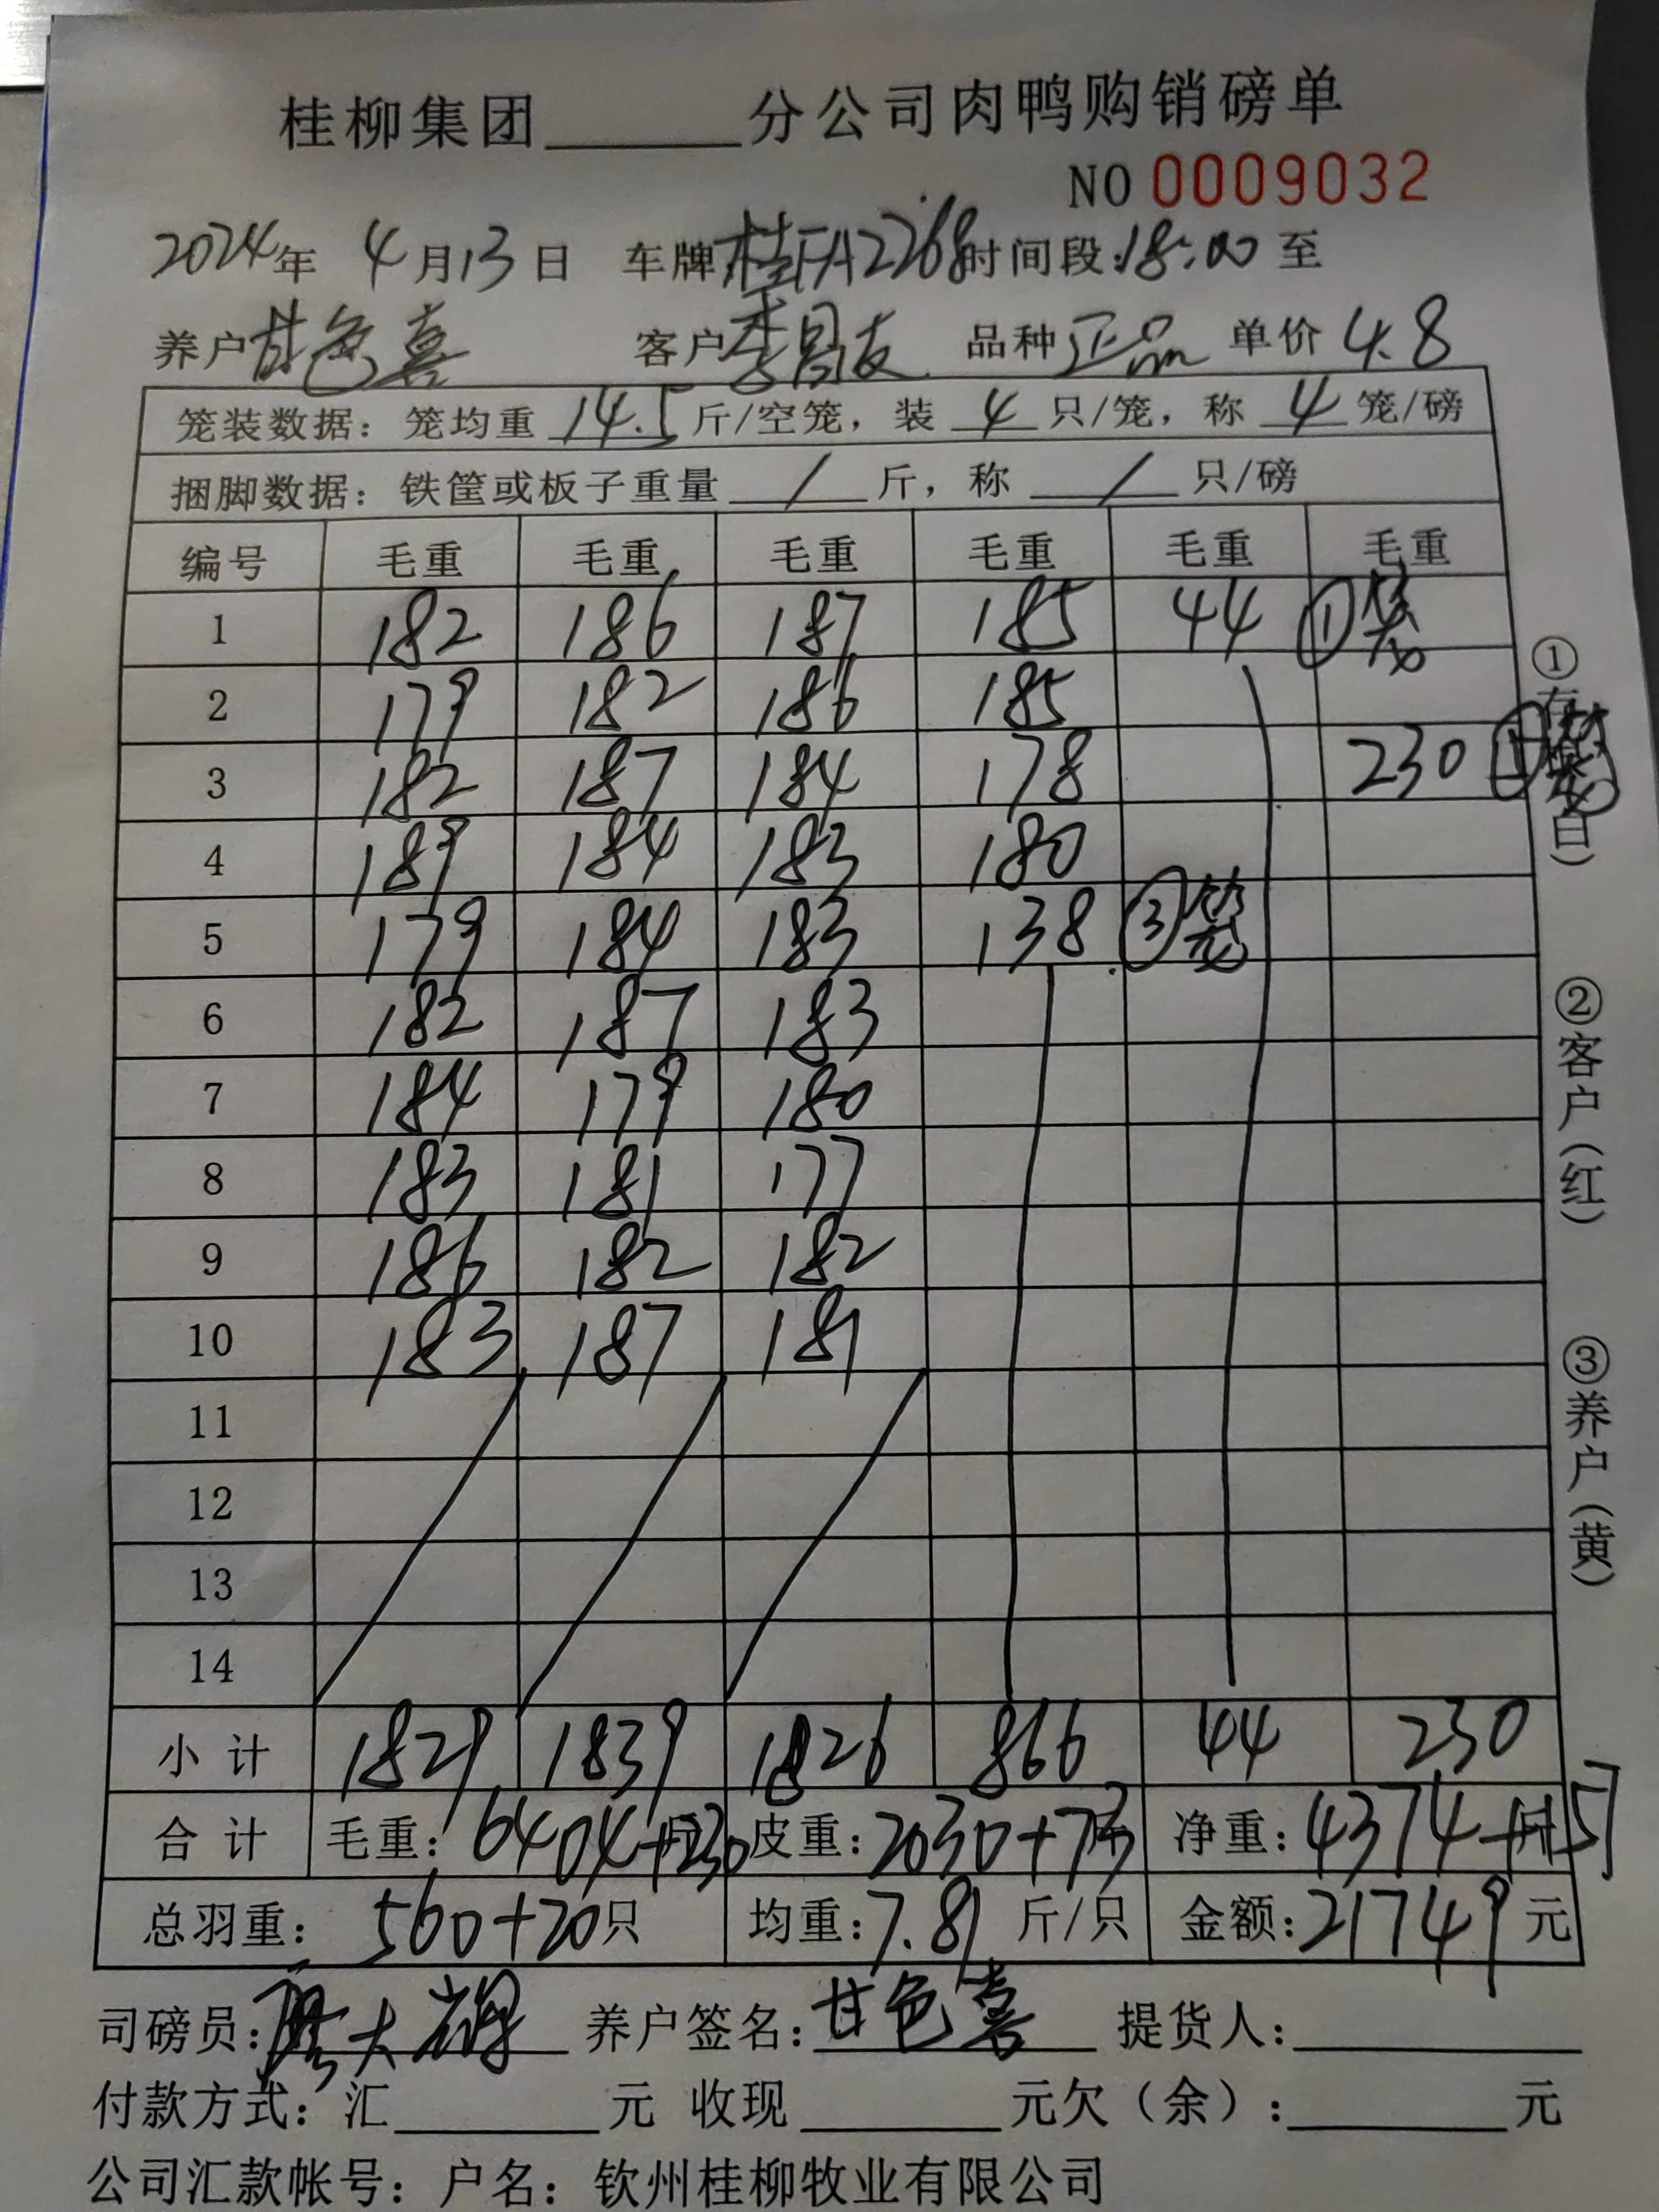 桂柳集团______分公司肉鸭购销磅单
NO 0009032
2024年 4月13日 车牌桂FA2268时间段:18:00至
养户甘色喜 客户李昌友 品种正品 单价4.8
笼装数据：笼均重 14.5 斤/空笼，装 4 只/笼，称 4 笼/磅
捆脚数据：铁筐或板子重量 / 斤，称 / 只/磅
编号 毛重 毛重 毛重 毛重 毛重 毛重
1 182 186 187 185 44 ①笼
2 179 182 186 185
3 182 187 184 178 230
4 189 184 183 180
5 179 184 183 138 ③笼
6 182 187 183
7 184 179 180
8 183 181 177
9 186 182 182
10 183 187 181
11
12
13
14
小计 1829 1839 1826 866 44 230
合计 毛重：6404+230 皮重：2030+73 净重：4374+157
总羽重：560+20只 均重：7.81斤/只 金额：21749元
司磅员： 养户签名：甘色喜 提货人：
付款方式：汇______元 收现______元欠（余）：______元
公司汇款帐号：户名：钦州桂柳牧业有限公司
①存根（白）
②客户（红）
③养户（黄）